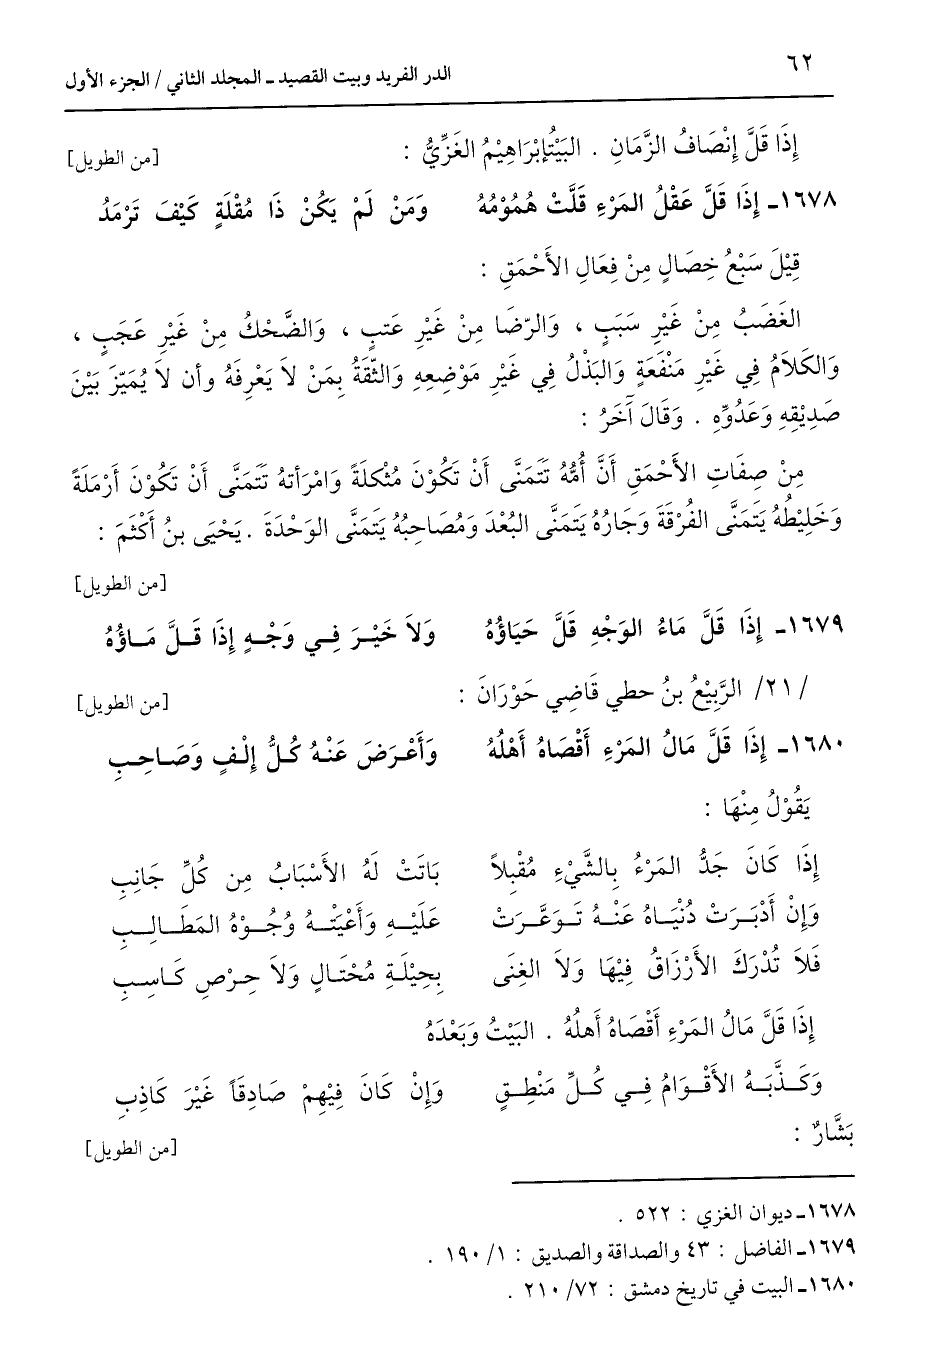 ٦٢
الدر الفريد وبيت القصيد ـ المجلد الثاني / الجزء الأول
إِذَا قَلَّ إِنْصَافُ الزَّمَانِ . البَيْتُإِبْرَاهِيْمُ الغَزِّيُّ : [من الطويل]
١٦٧٨ـ إِذَا قَلَّ عَقْلُ المَرْءِ قَلَّتْ هُمُوْمُهُ وَمَنْ لَمْ يَكُنْ ذَا مُقْلَةٍ كَيْفَ تَرْمَدُ
قِيْلَ سَبْعُ خِصَالٍ مِنْ فِعَالِ الأَحْمَقِ :
الغَضَبُ مِنْ غَيْرِ سَبَبٍ ، وَالرّضَا مِنْ غَيْرِ عَتبٍ ، وَالضَّحْكُ مِنْ غَيْرِ عَجَبٍ ،
وَالكَلاَمُ فِي غَيْرِ مَنْفَعَةٍ وَالبَذْلُ فِي غَيْرِ مَوْضِعِهِ وَالثّقَةُ بِمَنْ لاَ يَعْرِفَهُ وأن لاَ يُمَيّزَ بَيْنَ
صَدِيْقِهِ وَعَدُوِّهِ . وَقَالَ آَخَرُ :
مِنْ صِفَاتِ الأَحْمَقِ أَنَّ أُمُّهُ تَتَمَنَّى أَنْ تَكُوْنَ مُثْكلَةً وَامْرَأتهُ تَتَمَنَّى أَنْ تَكُوْنَ أَرْمَلَةً
وَخَلِيْطُهُ يَتَمَنَّى الفُرْقَةَ وَجَارُهُ يَتَمَنَّى البُعْدَ وَمُصَاحِبُهُ يَتَمَنَّى الوَحْدَةَ . يَحْيَى بنُ أَكْثَمَ :
[من الطويل]
١٦٧٩ـ إِذَا قَلَّ مَاءُ الوَجْهِ قَلَّ حَيَاؤُهُ وَلاَ خَيْـرَ فِـي وَجْـهٍ إِذَا قَـلَّ مَـاؤُهُ
/٢١/ الرَّبِيْعُ بنُ حطي قَاضِي حَوْرَانَ : [من الطويل]
١٦٨٠ـ إِذَا قَلَّ مَالُ المَرْءِ أَقْصَاهُ أَهْلُهُ وَأَعْـرَضَ عَنْـهُ كُـلُّ إِلْـفٍ وَصَـاحِـبِ
يَقُوْلُ مِنْهَا :
إِذَا كَانَ جَدُّ المَرْءُ بِالشَّيْءِ مُقْبِلاً بَاتَتْ لَهُ الأَسْبَابُ مِن كُلِّ جَانِبِ
وَإِنْ أَدْبَـرَتْ دُنْيَـاهُ عَنْـهُ تَـوَعَّـرَتْ عَلَيْـهِ وَأَعْيَتْـهُ وُجُـوْهُ المَطَـالِـبِ
فَلاَ تُدْرَكَ الأَرْزَاقُ فِيْهَا وَلاَ الغِنَى بِحِيْلَـةِ مُحْتَـالٍ وَلاَ حِـرْصِ كَـاسِـبِ
إِذَا قَلَّ مَالُ المَرْءِ أَقْصَاهُ أَهلُهُ . البَيْتُ وَبَعْدَهُ
وَكَـذَّبَـهُ الأَقْـوَامُ فِـي كُـلِّ مَنْطِـقٍ وَإِنْ كَانَ فِيْهِمْ صَادِقَاً غَيْرَ كَاذِبِ
بَشَّارٌ : [من الطويل]
١٦٧٨ـ ديوان الغزي : ٥٢٢ .
١٦٧٩ـ الفاضل : ٤٣ والصداقة والصديق : ١٩٠/١ .
١٦٨٠ـ البيت في تاريخ دمشق : ٢١٠/٧٢ .